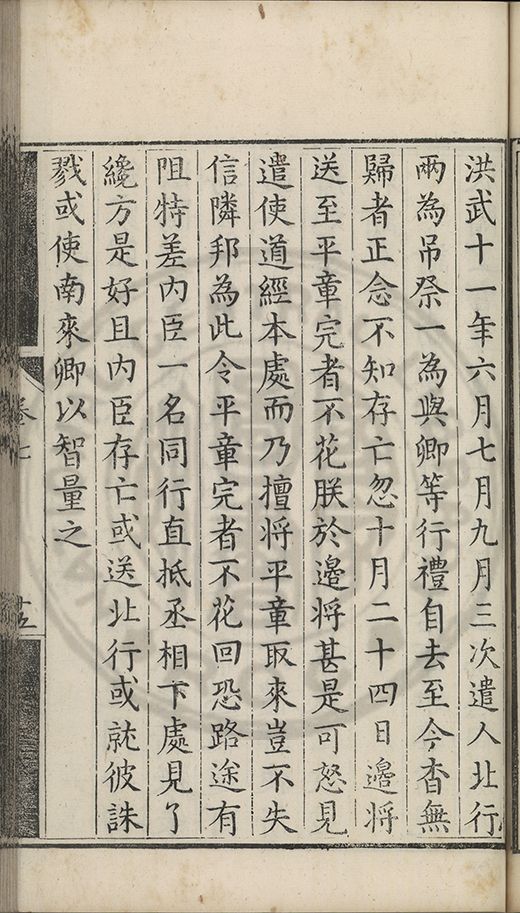 洪武十一年六月七月九月三次遣人北行
兩為吊祭一為與卿等行禮自去至今杳無
歸者正念不知存亡忽十月二十四日邊將
送至平章完者不花朕於邊將甚是可怒見
遣使道經本處而乃擅將平章取來豈不失
信隣邦為此令平章完者不花回恐路途有
阻特差內臣一名同行直抵丞相下處見了
纔方是好且內臣存亡或送北行或就彼誅
戮或使南來卿以智量之
卷七
廿五